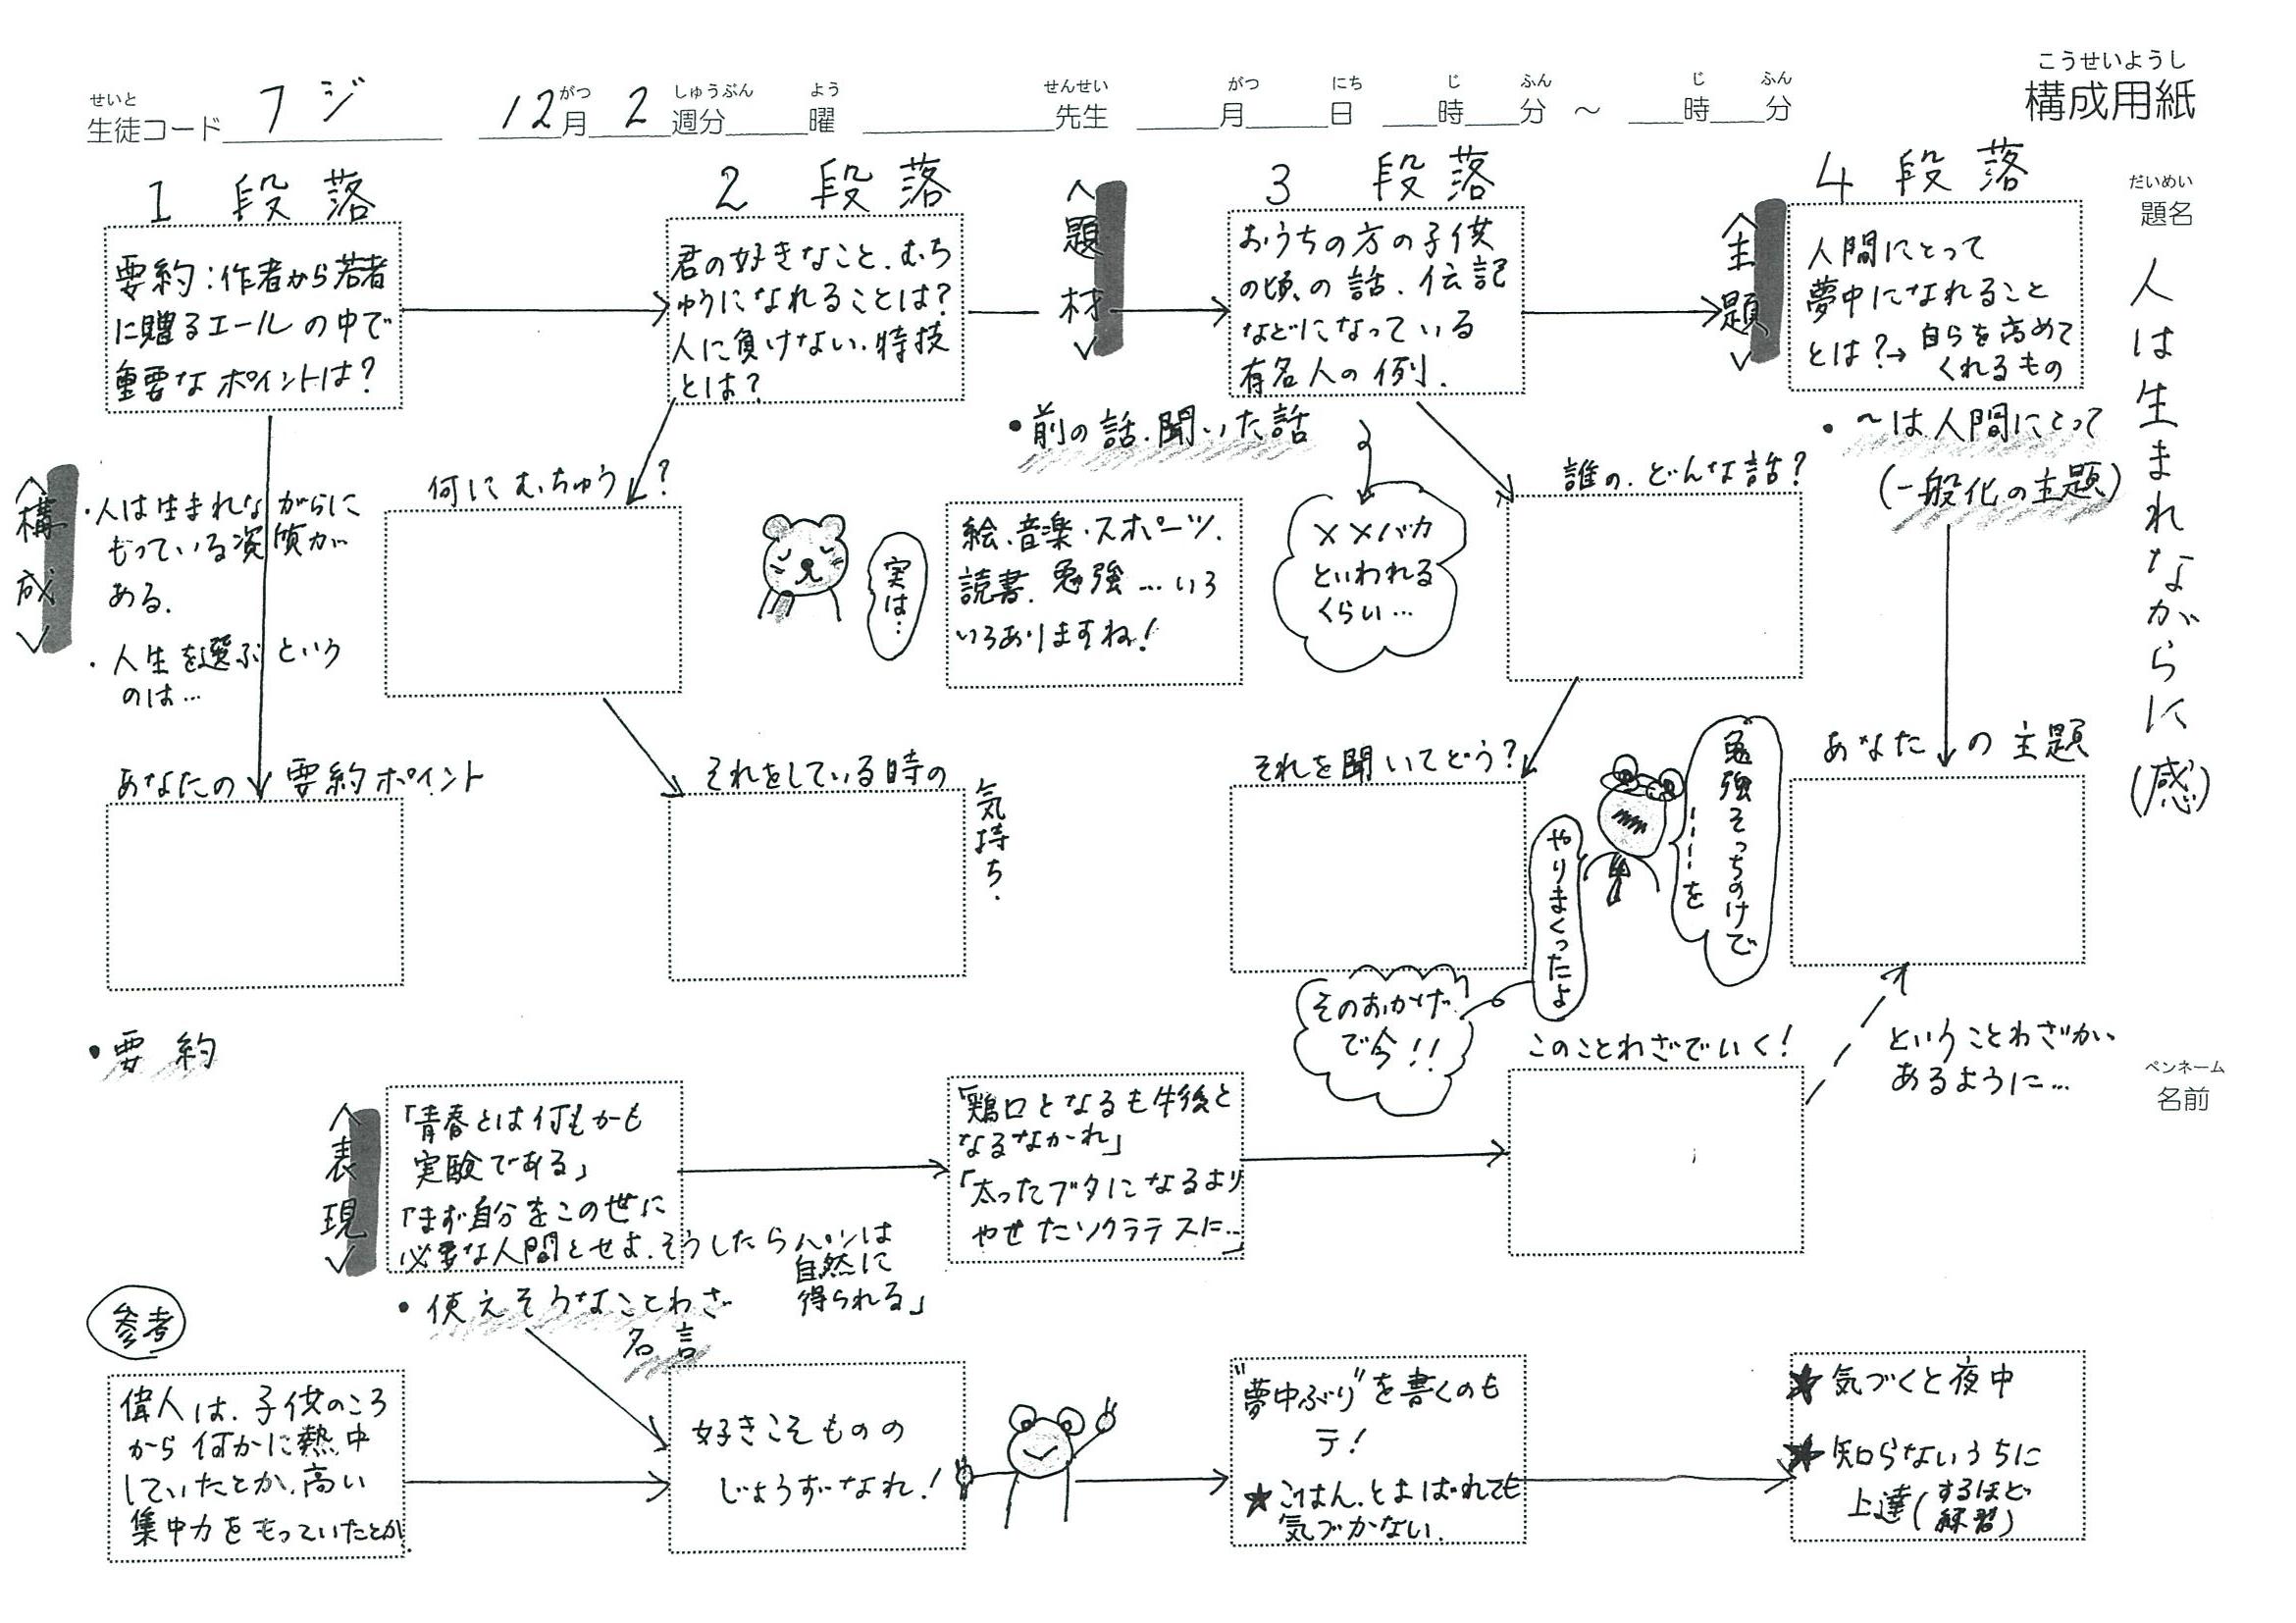 こうせいようし
構成用紙
せいと
生徒コード フジ
がつ しゅうぶん よう
12月 2週分 曜
せんせい
先生
がつ にち じ ふん じ ふん
月 日 時 分 ～ 時 分
だいめい
題名
人は生まれながらに(感)
ペンネーム
名前
1 段落
要約:作者から若者
に贈るエールの中で
重要なポイントは?
〈構成〉
・人は生まれながらに
もっている資質が
ある.
・人生を選ぶという
のは…
あなたの要約ポイント
・要約
2 段落
君の好きなこと.むち
ゅうになれることは?
人に負けない.特技
とは?
何にむちゅう?
実は…
絵.音楽・スポーツ.
読書.勉強…いろ
いろありますね!
それをしている時の
気持ち.
〈題材〉
3 段落
おうちの方の子供
の頃.の話.伝記
などになっている
有名人の例.
・前の話.聞いた話
××バカ
といわれる
くらい…
誰の.どんな話?
それを聞いてどう?
勉強そっちのけで
ーーーを
やりまくったよ
そのおかげ
で今!!
〈主題〉
4 段落
人間にとって
夢中になれること
とは?→自らを高めて
くれるもの
・～は人間にとって
(一般化の主題)
あなたの主題
ということわざが
あるように…
〈表現〉
「青春とは何もかも
実験である」
「まず自分をこの世に
必要な人間とせよ.そうしたらパンは
自然に
得られる」
・使えそうなことわざ
名言
「鶏口となるも牛後と
なるなかれ」
「太ったブタになるより
やせたソクラテスに…」
このことわざでいく!
参考
偉人は.子供のころ
から何かに熱中
していたとか.高い
集中力をもっていたとか.
好きこそものの
じょうずなれ!
"夢中ぶり"を書くのも
テ!
★ごはん.とよばれても
気づかない.
★気づくと夜中
★知らないうちに
上達(するほど
練習)